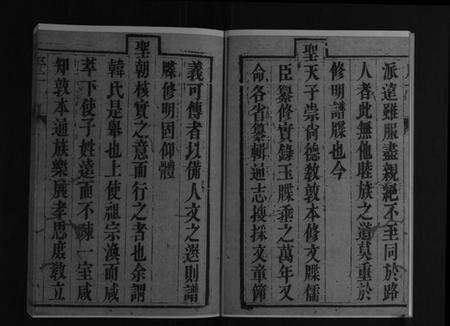 派遠雖服盡親絕不至同於路
人者此無他睦族之道莫重於
修明譜牒也今
聖天子崇尚德教敦本修文牒儒
臣纂修實錄玉牒垂之萬年又
命各省纂輯通志搜採文章節
義可傳者以備人文之選則譜
牒修明固仰體
聖朝核實之意而行之者也余謂
韓氏是舉也上使祖宗渙而咸
萃下使子姓遠而不疎一室咸
知敦本通族樂展孝思庶教立